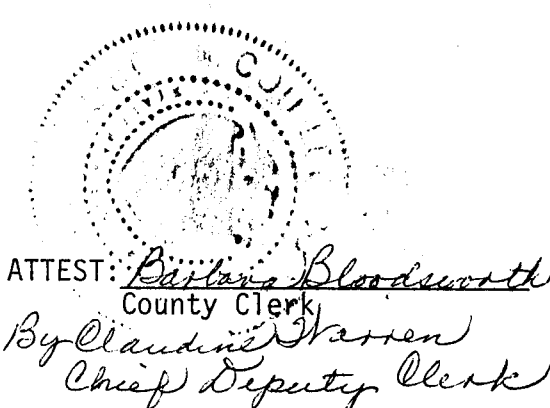 ATTEST: Barbara Bloodsworth
County Clerk
By Claudine Warren
Chief Deputy Clerk